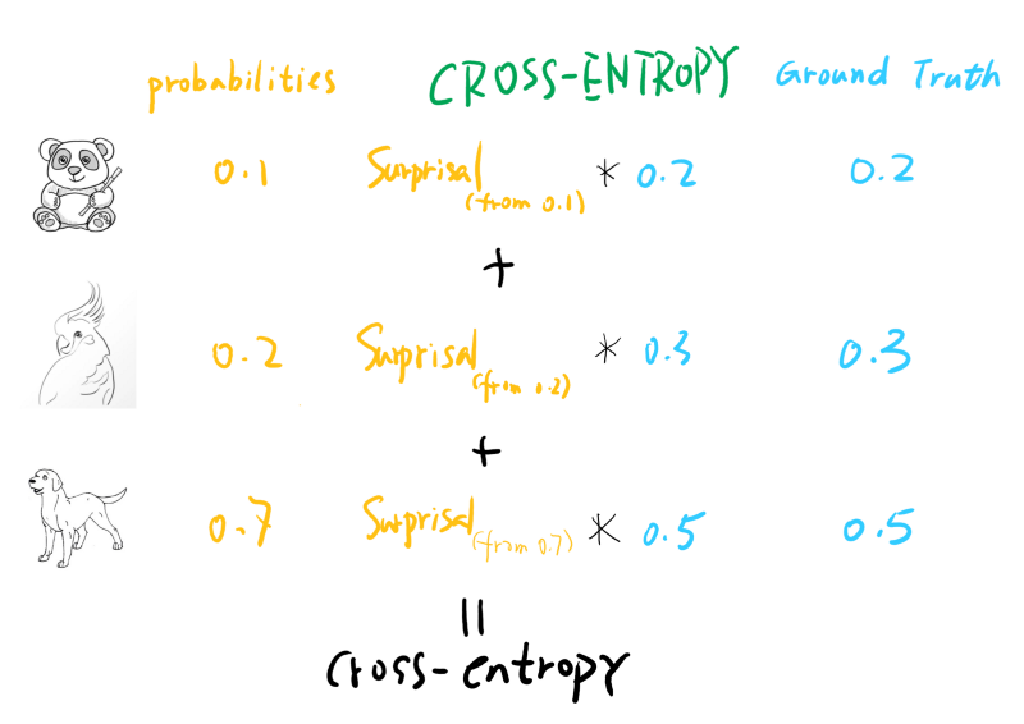 probabilities CROSS-ENTROPY Ground Truth
0.1 Surprisal (from 0.1) * 0.2 0.2
+
0.2 Surprisal (from 0.2) * 0.3 0.3
+
0.7 Surprisal (from 0.7) * 0.5 0.5
=
Cross-entropy